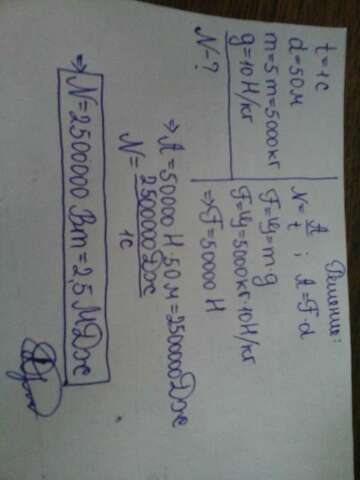 t=1c
d=50м
m=5т=5000кг
g=10 Н/кг
N-?
Решение:
N=A/t ; A=F·d
F=m·g
F=5000кг·10Н/кг
⇒F=50000 Н
⇒ A=50000 Н 50м=2500000Дж
N=2500000Дж/1с
⇒ N=2500000 Вт=2,5 МДж